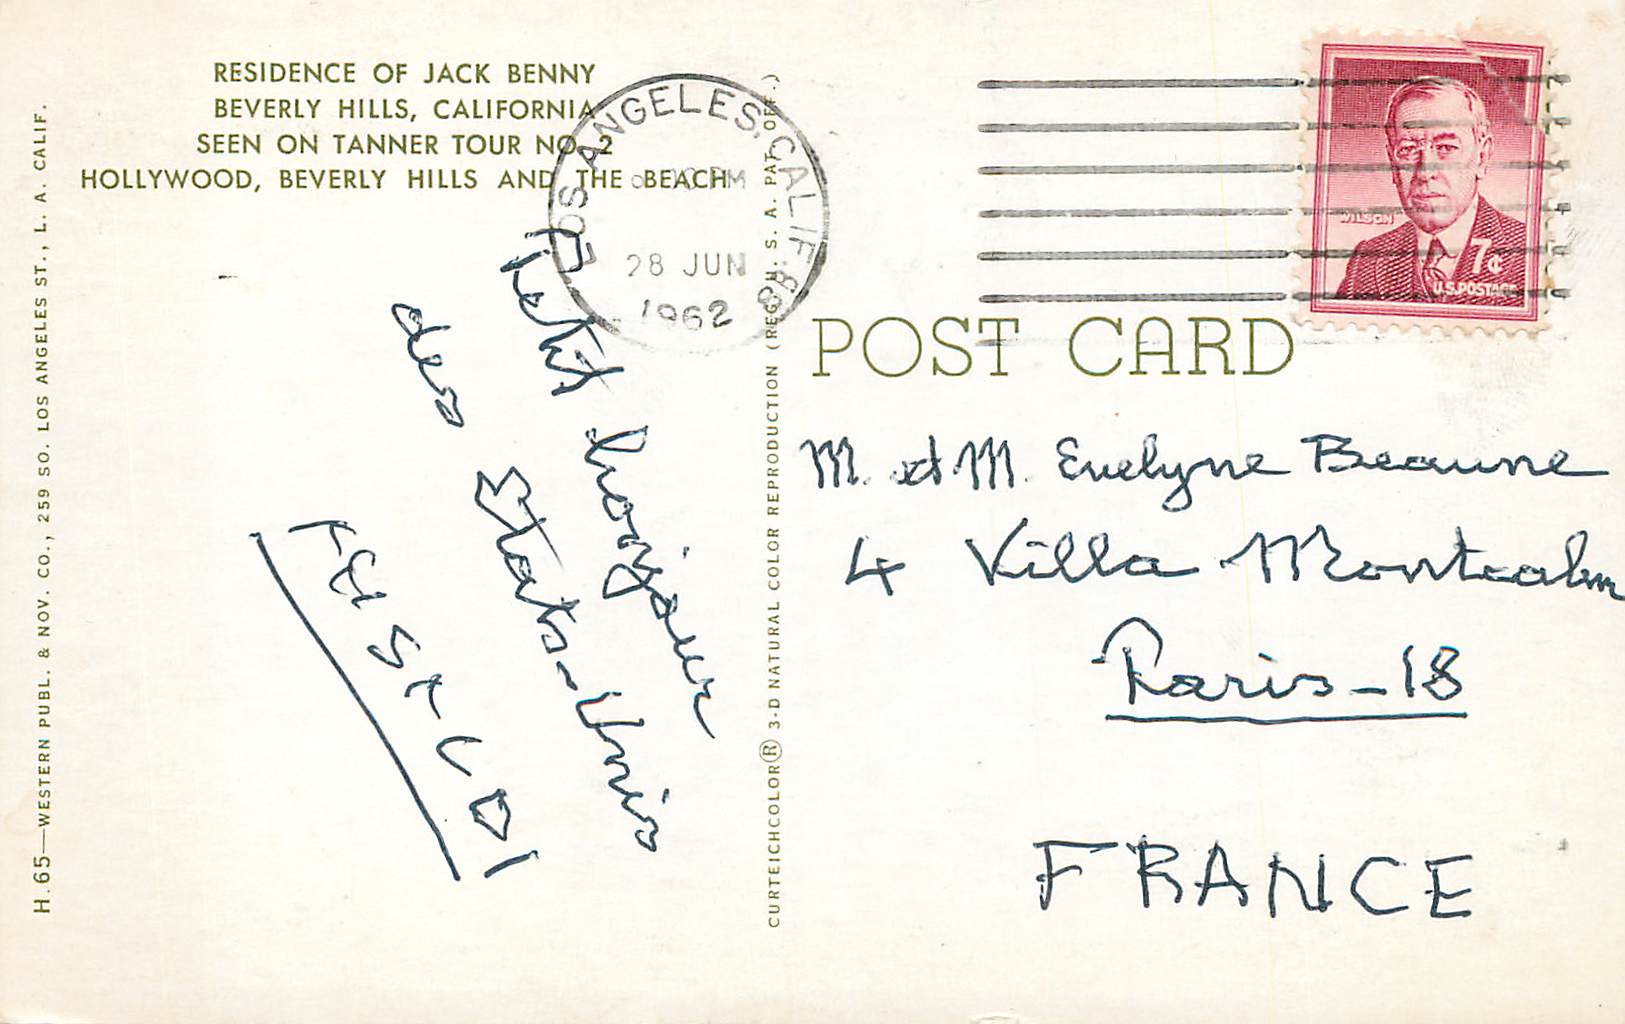 RESIDENCE OF JACK BENNY
BEVERLY HILLS, CALIFORNIA
SEEN ON TANNER TOUR NO. 2
HOLLYWOOD, BEVERLY HILLS AND THE BEACH
H.65—WESTERN PUBL. & NOV. CO., 259 SO. LOS ANGELES ST., L. A. CALIF.
LOS ANGELES, CALIF.
PM
28 JUN
1962
WILSON
7¢
U.S.POSTAGE
POST CARD
CURTEICHCOLOR® 3-D NATURAL COLOR REPRODUCTION (REG'D. U. S. A. PAT. OFF.)
Petit bonjour
des
Etats-Unis
M. et M. Evelyne Beaune
4 Villa Montcalm
Paris-18
FRANCE